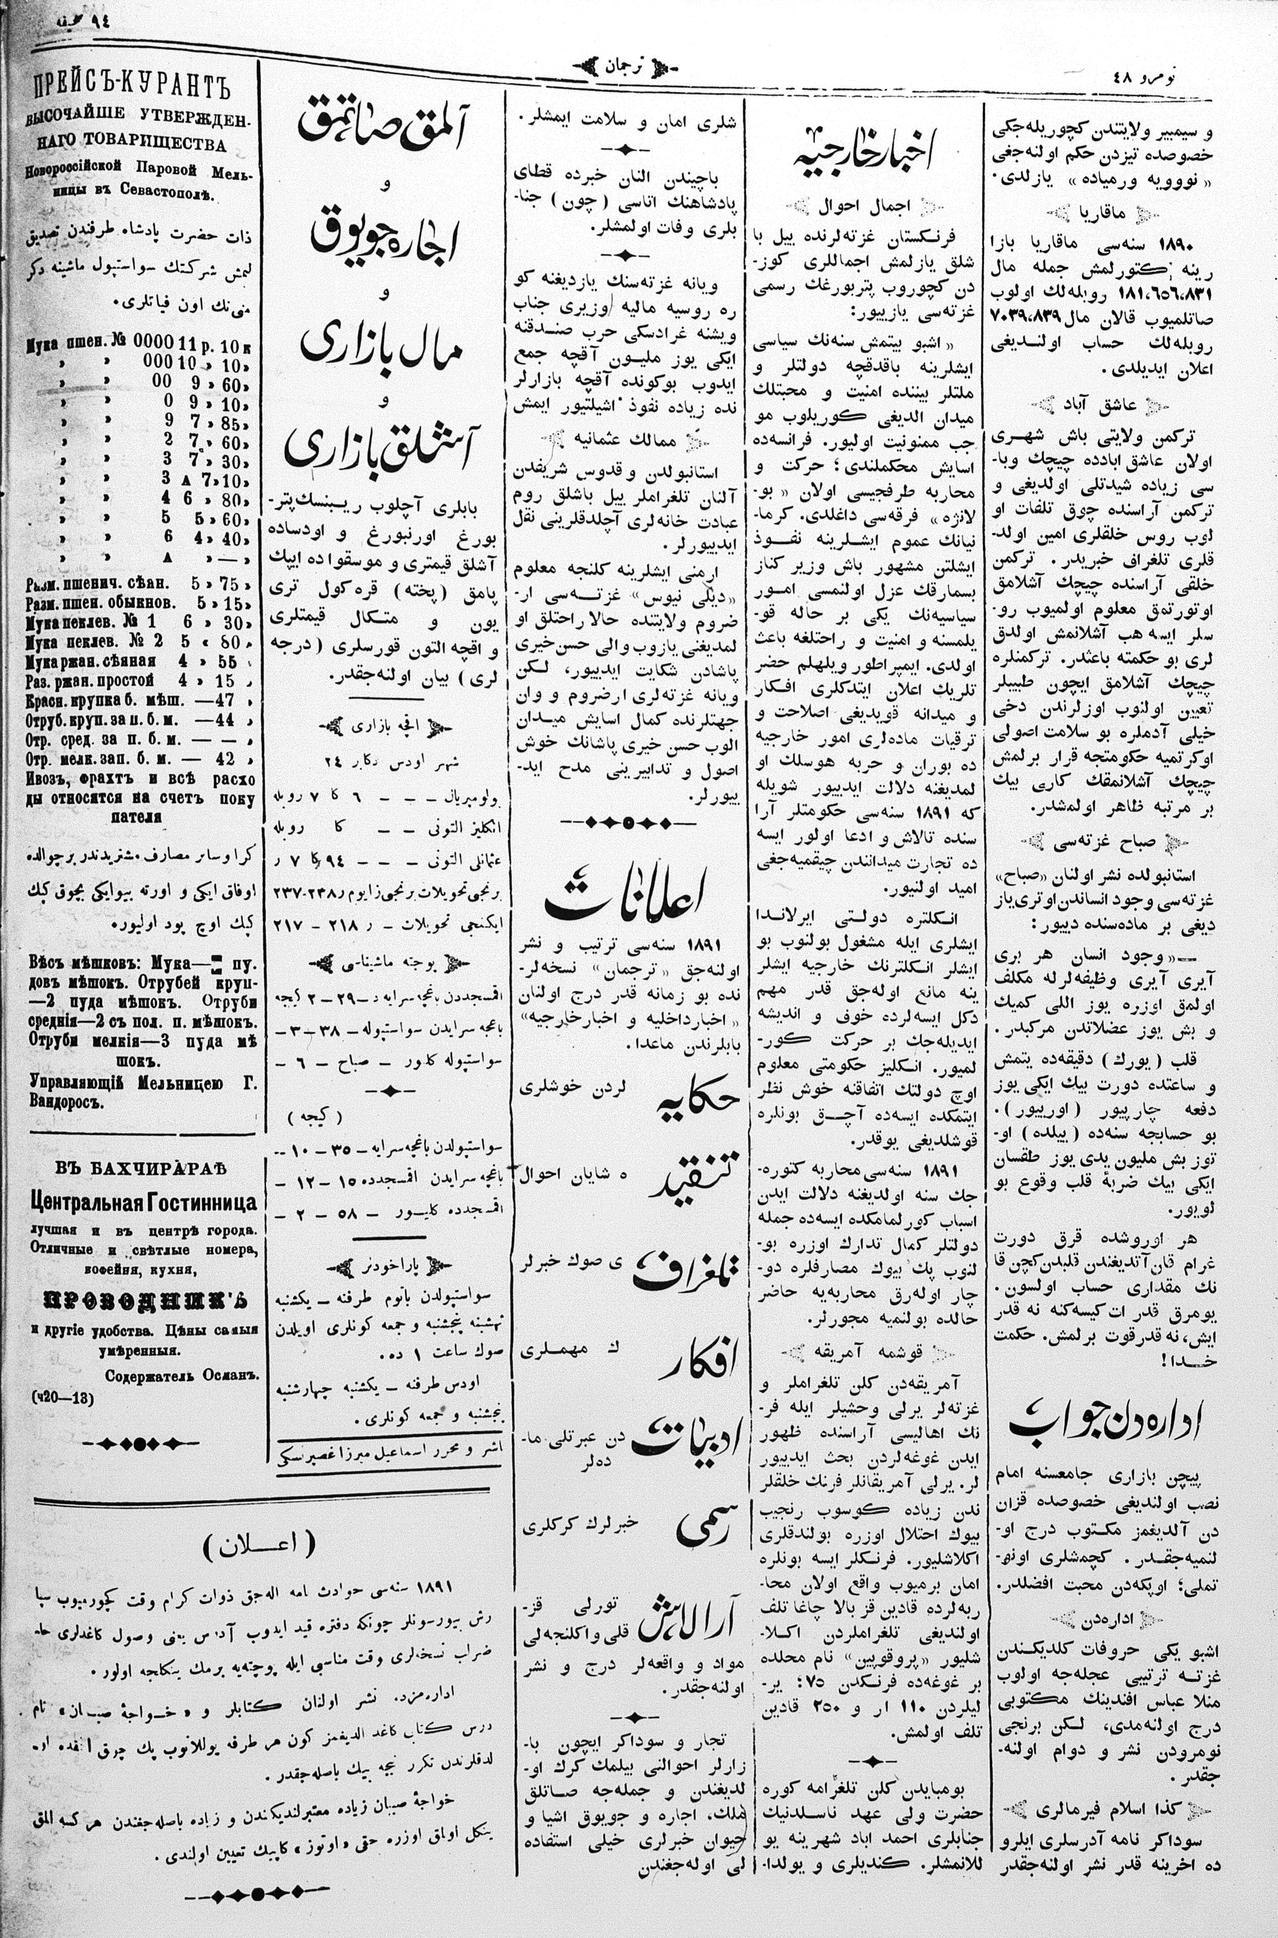 نومرو ٤٨
ترجمان
٩٤ صحیفه
و سیمبیر ولایتندن کچوریله‌جکی
خصوصده تیزدن حکم اولنه‌جغی
«نووویه ورمیاده» یازلدی.
ماقاریا
١٨٩٠ سنه‌سی ماقاریا بازا
رینه کتورلمش جمله مال
١٨١،٦٥٦،٨٣١ روبله‌لك اولوب
صاتلمیوب قالان مال ٧٠٣٩،٨٣٩
روبله‌لك حساب اولندیغی
اعلان ایدیلدی.
عاشق آباد
ترکمن ولایتی باش شهری
اولان عاشق اباددە چیچك وبا-
سی زیاده شیدتلی اولدیغی و
ترکمن آراسنده چوق تلفات او
لوب روس خلقلری امین اولد-
قلری تلغراف خبریدر. ترکمن
خلقی آراسنده چیچك آشلامق
اوتورتمق معلوم اولمیوب رو-
سلر ایسه هب آشلانمش اولدق
لری بو حکمته باعثدر. ترکمنلره
چیچك آشلامق ایچون طبیبلر
تعیین اولنوب اوزلرندن دخی
خیلی آدملره بو سلامت اصولی
اوکرتمیه حکومتجه قرار برلمش
چیچك آشلانمقك کاری بیك
بر مرتبه ظاهر اولمشدر.
صباح غزته‌سی
استانبولده نشر اولنان «صباح»
غزته‌سی وجود انساندن اوتری یاز
دیغی بر ماده‌سنده دییور:
—«وجود انسان هر بری
آیری آیری وظیفه‌لرله مکلف
اولمق اوزره یوز اللی کمیك
و بش یوز عضلاتدن مرکبدر.
قلب (یورك) دقیقه‌ده یتمش
و ساعتده دورت بیك ایکی یوز
دفعه چارپیور (اورییور).
بو حسابجه سنه‌ده (ییلده) او-
توز بش ملیون یدی یوز طقسان
ایکی بیك ضربهٔ قلب وقوع بو
لویور.
هر اوروشده قرق دورت
غرام قان آتدیغندن قلبدن کچن قا
نك مقداری حساب اولسون.
یومرق قدر ات کیسه‌کنه نه قدر
ایش، نه قدر قوت برلمش. حکمت
خدا!
اداره‌دن جواب
پیچن بازاری جامعسنه امام
نصب اولندیغی خصوصده قزان
دن آلدیغمز مکتوب درج او-
لنمیه‌جقدر. کچمشلری اونو-
تملی؛ اوپکه‌دن محبت افضلدر.
اداره‌دن
اشبو یکی حروفات کلدیکندن
غزته ترتیبی عجله‌جه اولوب
منلا عباس افندینك مکتوبی
درج اولنه‌مدی، لکن برنجی
نومرودن نشر و دوام اولنه-
جقدر.
کذا اسلام فیرمالری
سوداکر نامه آدرسلری ایلرو
ده اخرینه قدر نشر اولنه‌جقدر
اخبار خارجیه
اجمال احوال
فرنکستان غزته‌لرنده ییل با
شلق یازلمش اجماللری کوز-
دن کچوروب پتربورغك رسمی
غزته‌سی یازییور:
«اشبو بیتمش سنه‌نك سیاسی
ایشلرینه باقدقچه دولتلر و
ملتلر بیننده امنیت و محبتلك
میدان الدیغی کوریلوب مو
جب ممنونیت اولیور. فرانسه‌ده
اسایش محکملندی؛ حرکت و
محاربه طرفجیسی اولان «بو-
لانژه» فرقه‌سی داغلدی. کرما-
نیانك عموم ایشلرینه نفوذ
ایشلتن مشهور باش وزیر کناز
بسمارقك عزل اولنمسی امور
سیاسیه‌نك یکی بر حاله قو-
یلمسنه و امنیت و راحتلغه باعث
اولدی. ایمپراطور ویلهلم حضر
تلرینك اعلان ایتدکلری افکار
و میدانه قویدیغی اصلاحت و
ترقیات ماده‌لری امور خارجیه
ده بوران و حربه هوسلك او
لمدیغنه دلالت ایدییور شویله
که ١٨٩١ سنه‌سی حکومتلر آرا
سنده تالاش و ادعا اولور ایسه
ده تجارت میدانندن چیقمیه‌جغی
امید اولنیور.
انکلتره دولتی ایرلاندا
ایشلری ایله مشغول بولنوب بو
ایشلر انکلترنك خارجیه ایشلر
ینه مانع اوله‌جق قدر مهم
دکل ایسه‌لرده خوف و اندیشه
ایدیله‌جك بر حرکت کور-
لمیور. انکلیز حکومتی معلوم
اوچ دولتك اتفاقنه خوش نظر
ایتمکده ایسه‌ده آچق بونلره
قوشلدیغی یوقدر.
١٨٩١ سنه‌سی محاربه کتوره-
جك سنه اولدیغنه دلالت ایدن
اسباب کورلمامکده ایسه‌ده جمله
دولتلر کمال تدارك اوزره بو-
لنوب پك بیوك مصارفلره دو-
چار اوله‌رق محاربه‌یه حاضر
حالده بولنمیه مجورلر.
قوشمه آمریقه
آمریقه‌دن کلن تلغراملر و
غزته‌لر یرلی وحشیلر ایله فر-
نك اهالیسی آراسنده ظهور
ایدن غوغه‌لردن بحث ایدییور
لر. یرلی آمریقانلر فرنك خلقلر
ندن زیاده کوسوب رنجیب
بیوك احتلال اوزره بولندقلری
اکلاشلیور. فرنکلر ایسه بونلره
امان برمیوب واقع اولان محا-
ربه‌لرده قادین قز بالا چاغا تلف
اولندیغی تلغراملردن اکلا-
شلیور «پروقوپین» نام محلده
بر غوغه‌ده فرنکدن ٧٥؛ یر-
لیلردن ١١٠ ار و ٢٥٠ قادین
تلف اولمش.
بومبایدن کلن تلغرامه کوره
حضرت ولی عهد ناسلدنیك
جنابلری احمد اباد شهرینه یو
للانمشلر. کندیلری و یولدا-
شلری امان و سلامت ایمشلر.
باچیندن النان خبرده قطای
پادشاهنك اتاسی (چون) جنا-
بلری وفات اولمشلر.
ویانه غزته‌سنك یازدیغنه کو
ره روسیه مالیه وزیری جناب
ویشنه غرادسکی حرب صندقنه
ایکی یوز ملیون آقچه جمع
ایدوب بوکونده آقچه بازارلر
نده زیاده نفوذ اشیلتیور ایمش
ممالك عثمانیه
استانبولدن و قدوس شریفدن
آلنان تلغراملر ییل باشلق روم
عبادت خانه‌لری آچلدقلرینی نقل
ایدییورلر.
ارمنی ایشلرینه کلنجه معلوم
«دیلی نیوس» غزته‌سی ار-
ضروم ولایتنده حالا راحتلق او
لمدیغنی یازوب والی حسن خیری
پاشادن شکایت ایدییور، لکن
ویانه غزته‌لری ارضروم و وان
جهتلرنده کمال اسایش میدان
الوب حسن خیری پاشانك خوش
اصول و تدابیرینی مدح اید-
ییورلر.
اعلانات
١٨٩١ سنه‌سی ترتیب و نشر
اولنه‌جق «ترجمان» نسخه‌لر-
نده بو زمانه قدر درج اولنان
«اخبار داخلیه و اخبار خارجیه»
بابلرندن ماعدا.
حکایه لردن خوشلری
تنقید ه شایان احوال
تلغراف ی صوك خبرلر
افکار ك مهملری
ادبیات دن عبرتلی ما-
ده‌لر
رسمی خبرلرك کرکلری
آرالاش تورلی قز-
قلی و اکلنجه‌لی
مواد و واقعه‌لر درج و نشر
اولنه‌جقدر.
تجار و سوداکر ایچون با-
زارلر احوالنی بیلمك کرك او-
لدیغندن و جمله‌جه صاتلق
ملك، اجاره و جویوق اشیا و
حیوان خبرلری خیلی استفاده
لی اوله‌جغندن
آلمق صاتمق
و
اجاره جویوق
و
مال بازاری
و
آشلق بازاری
بابلری آچلوب ریبنسك پتر-
بورغ اورنبورغ و اودساده
آشلق قیمتری و موسقواده ایپك
پامق (پخته) قره کول تری
یون و متکال قیمتلری
و اقچه التون قورسلری (درجه
لری) بیان اولنه‌جقدر.
اقچه بازاری
شهر اودس دکابر ٢٤
پولومپریال — — ٦ کا ٧ روبله
انکلیز التونی — — کا روبله
عثمانلی التونی — — ٩٤ رکا ٧ ر
برنجی تحویلات برنجی زایوم ر ٢٣٨-٢٣٧
ایکنجی تحویلات — ر ٢١٨ — ٢١٧
پوچته ماشیناسی
اقمسجددن باغچه سرایه د — ٢٩ — ٢ کیجه
باغچه سرایدن سواستپوله — ٣٨ — ٣ —
سواستپوله کلدور — صباح — ٦ —
(کیجه)
سواستپولدن باغچه سرایه — ٣٥ — ١٠ —
باغچه سرایدن اقمسجدده ١٥ — ١٢ —
اقمسجدده کلیور — ٥٨ — ٢ —
پاراخودنر
سواستپولدن باتوم طرفنه — یکشنبه
پنجشنبه و جمعه کونلری اویلدن
صوك ساعت ١ ده.
اودس طرفنه — یکشنبه چهارشنبه
پنجشنبه و جمعه کونلری.
ناشر و محرر اسماعیل میرزا غصپرنسکی
ПРЕЙСЪ-КУРАНТЪ
ВЫСОЧАЙШЕ УТВЕРЖДЕН-
НАГО ТОВАРИЩЕСТВА
Новороссійской Паровой Мель-
ницы въ Севастополѣ.
ذات حضرت پادشاه طرفندن تصدیق
لیمش شرکتك سواستپول ماشینه دکر
منی‌نك اون قیاتلری.
Мука пшен. № 0000 11 р. 10 к
» » 000 10 » 10 »
» » 00 9 » 60 »
» » 0 9 » 10 »
» » 9 7 » 85 »
» » 2 7 » 60 »
» » 3 7 » 30 »
» » 3 А 7 » 10 »
» » 4 6 » 80 »
» » 5 5 » 60 »
» » 6 4 » 40 »
» » А » — »
Разм. пшенич. сѣан. 5 » 75 »
Разм. пшен. обыкнов. 5 » 15 »
Мука пеклев. № 1 6 » 30 »
Мука пеклев. № 2 5 « 80 »
Мука ржан. сѣяная 4 » 55 »
Раз. ржан. простой 4 » 15 »
Красн. крупка б. мѣш. —47 »
Отруб. круп. за п. б. м. —44 »
Отр. сред. за п. б. м. — — »
Отр. мелк. зап. б. м. — 42 »
Ивозъ, фрахтъ и всѣ расхо
ды относятся на счетъ поку
пателя
کرا و سایر مصارف مشتریدندر بر چوالده
اوفاق ایکی و اورته بیوایکی بچوق کپك
کپك اوچ پود اولیور.
Вѣсъ мѣшковъ: Мука— пу-
довъ мѣшокъ. Отрубей круп-
—2 пуда мѣшокъ. Отруби
среднія—2 съ пол. п. мѣшокъ.
Отруби мелкія—3 пуда мѣ
шокъ.
Управляющій Мельницею Г.
Вандоросъ.
ВЪ БАХЧИРАРАѢ
Центральная Гостинница
лучшая и въ центрѣ города.
Отличные и свѣтлые номера,
кофейня, кухня,
ПРОВОДНИКЪ
и другіе удобства. Цѣны самыя
умѣренныя.
Содержатель Османъ.
(ч20—13)
(اعلان)
١٨٩١ سنه‌سی حوادث نامه اله‌جق ذوات کرام وقت کچورمیوب سپا
رش بیورسونلر چونکه دفتره قید ایدوب آدرس یعنی وصول کاغدلری حا-
ضراب نسخه‌لری وقت مناسبی ایله پوچته‌یه برمك ینکلجه اولور.
اداره‌مزد. نشر اولنان کتابلر و «خواجهٔ صبیان» نام
درس کتابی کاغد الدیغمز کون هر طرفه یوللانوب پك چوق
لدقلرندن تکرر نچه بیك باصله‌جقدر.
خواجهٔ صبیان زیاده معتبرلندیکندن و زیاده باصله‌جغندن هر کسه المق
ینکل اولمق اوزره حقی «اوتوز» کاپیك تعیین اولندی.